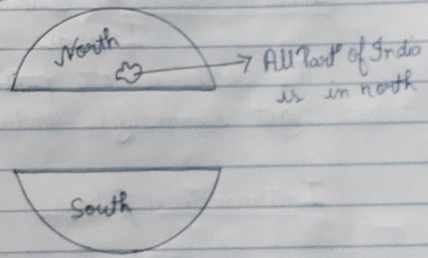 North
All Part of India
is in north
South